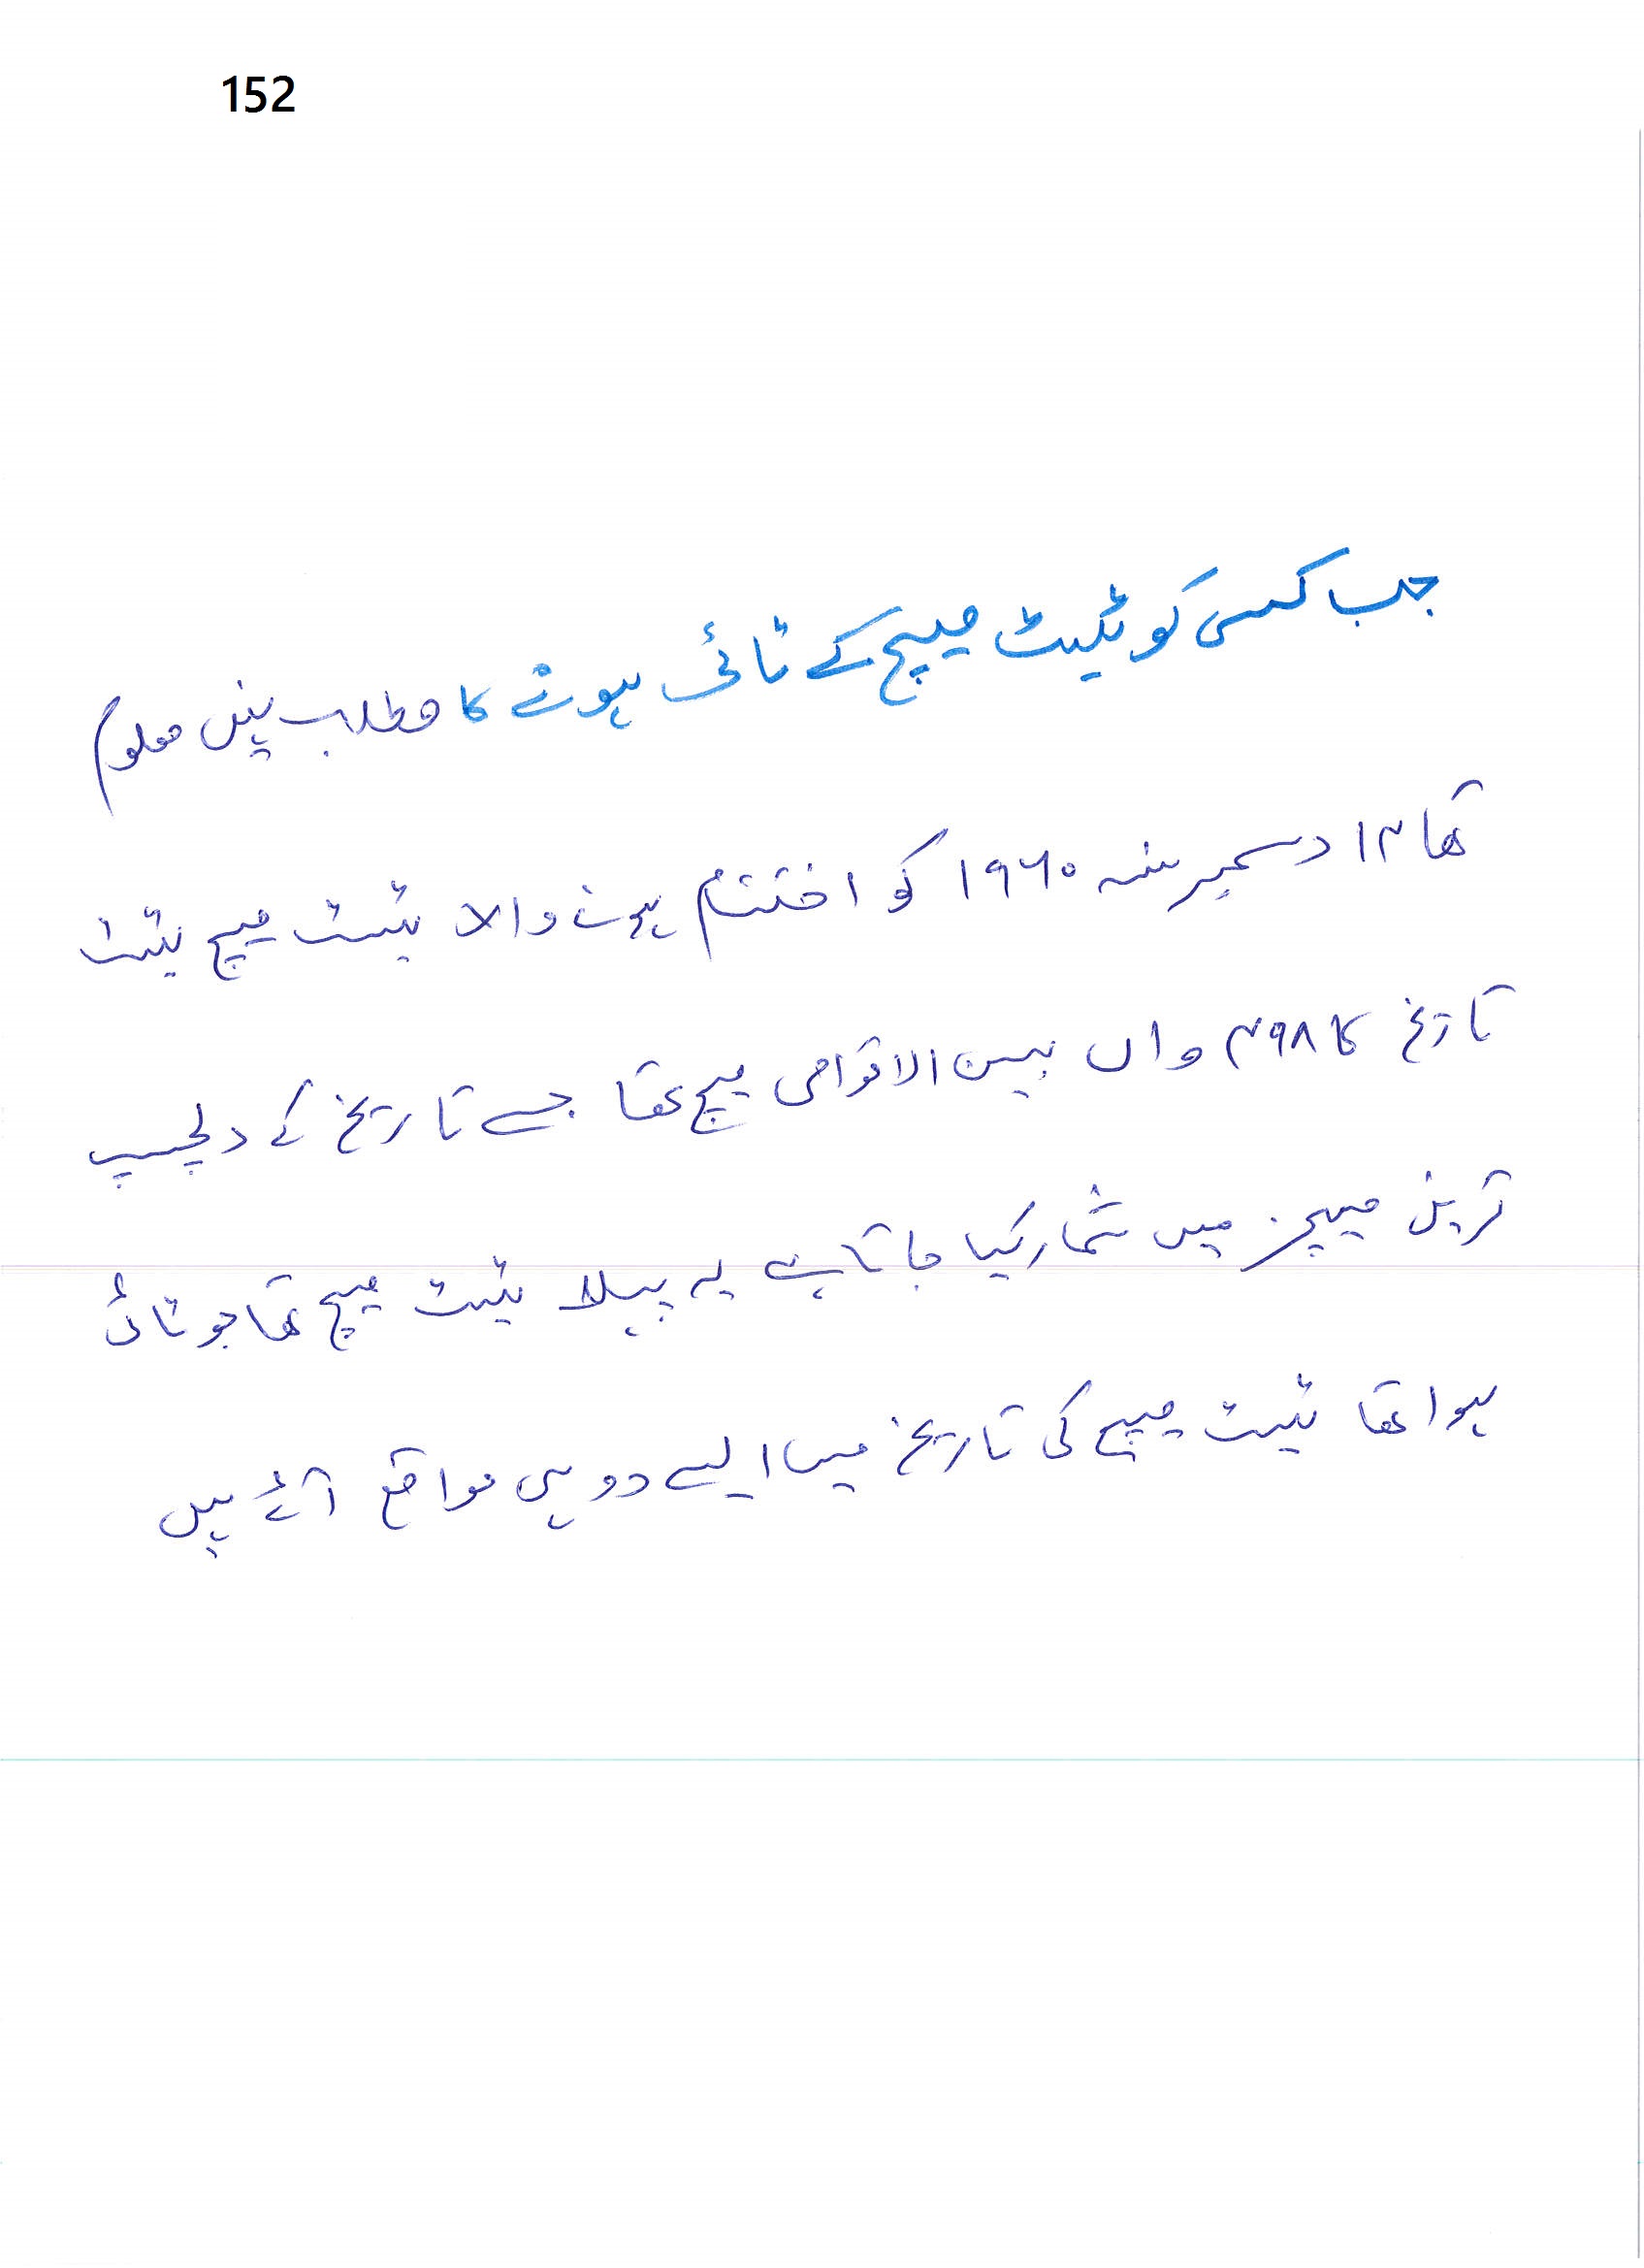 152
جب کسی کو ٹکیٹ میچ کے ٹائی ہونے کا مطلب نہیں معلوم
تھا ۱۴ دسمبر سنہ ۱۹۶۰ کو اختتام ہونے والا ٹیسٹ میچ ٹیسٹ
تاریخ کا ۴۹۸ واں بین الاقوامی میچ تھا جسے تاریخ کے دلچسپ
ترین میچز میں شمار کیا جاتا ہے یہ پہلا ٹیسٹ میچ تھا جو ٹائی
ہوا تھا ٹیسٹ میچ کی تاریخ میں ایسے دو ہی مواقع آئے ہیں